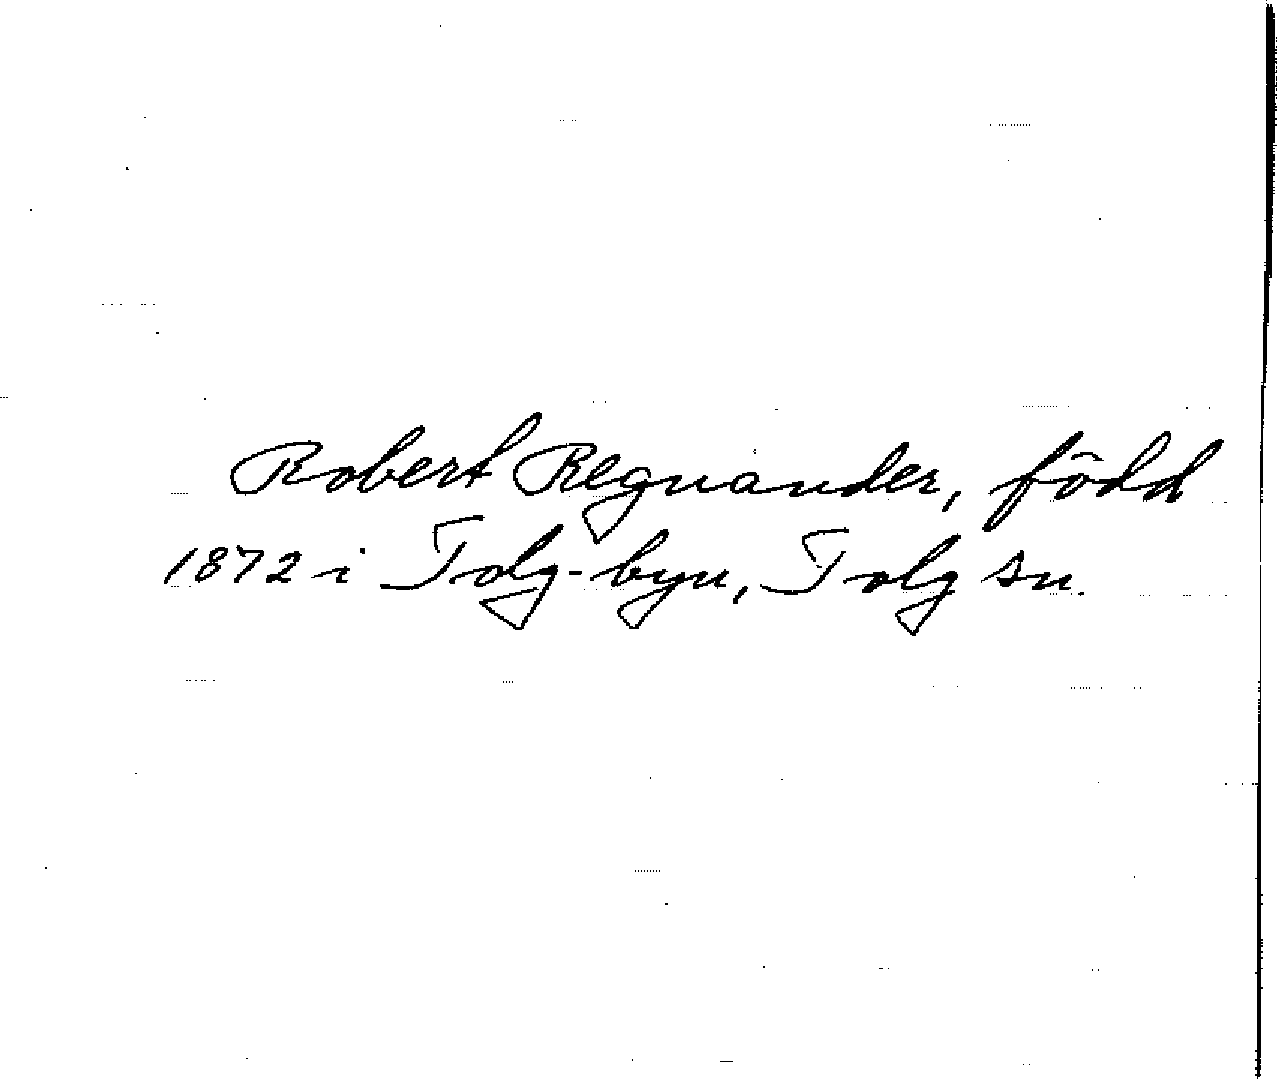 Robert Regnander, född
1872 i Tolg-byn, Tolg sn.